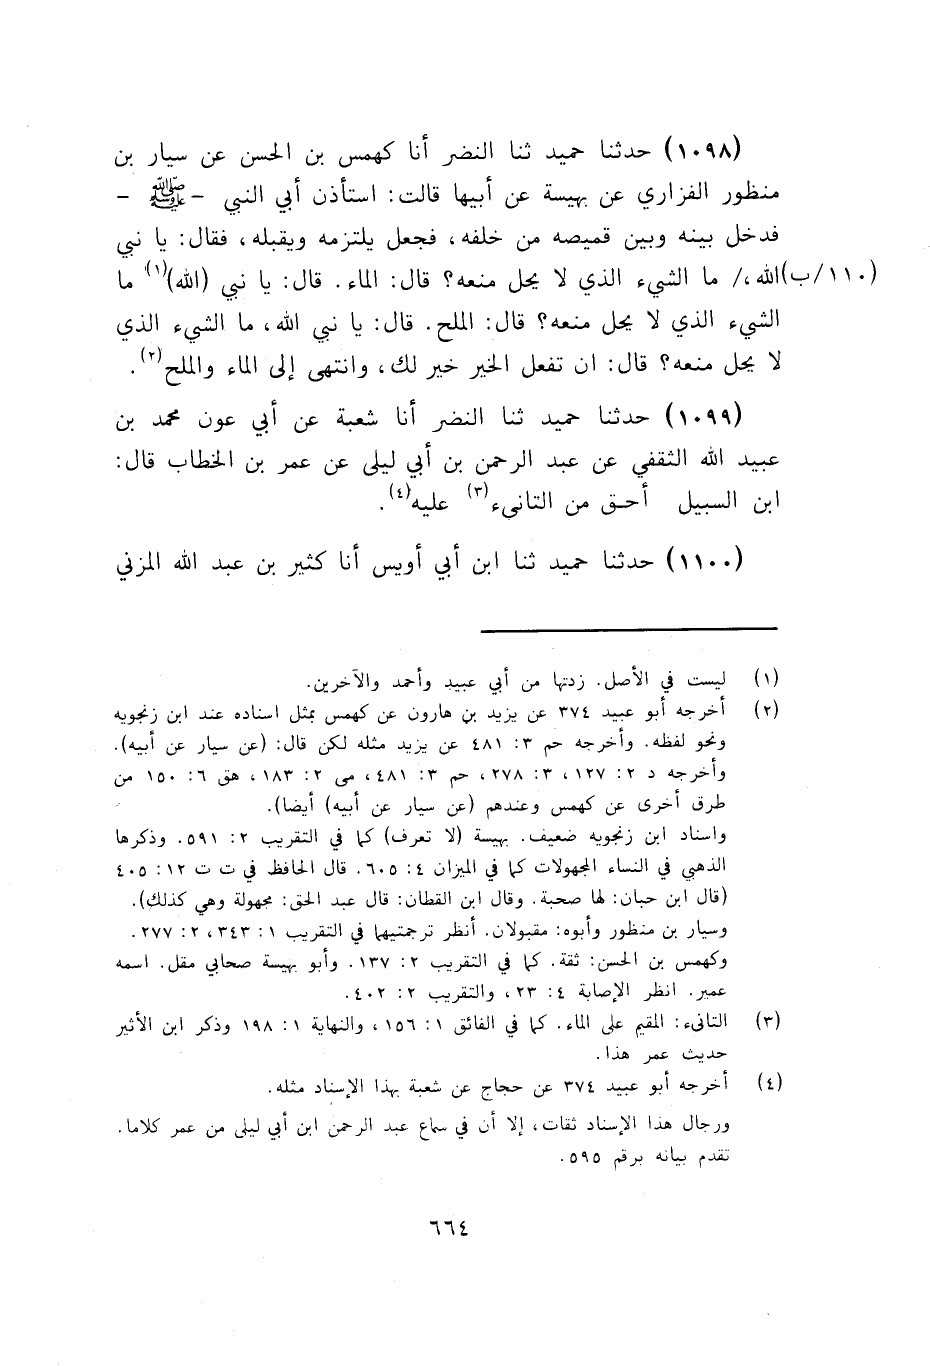 (١٠٩٨) حدثنا حميد ثنا النضر أنا كهمس بن الحسن عن سيار بن
منظور الفزاري عن بهيسة عن أبيها قالت: استأذن أبي النبي -ﷺ -
فدخل بينه وبين قميصه من خلفه، فجعل يلتزمه ويقبله، فقال: يا نبي
(١١٠/ب)الله،/ ما الشيء الذي لا يحل منعه؟ قال: الماء. قال: يا نبي (الله)(١) ما
الشيء الذي لا يحل منعه؟ قال: الملح. قال: يا نبي الله، ما الشيء الذي
لا يحل منعه؟ قال: ان تفعل الخير خير لك، وانتهى إلى الماء والملح(٢).
(١٠٩٩) حدثنا حميد ثنا النضر أنا شعبة عن أبي عون محمد بن
عبيد الله الثقفي عن عبد الرحمن بن أبي ليلى عن عمر بن الخطاب قال:
ابن السبيل أحق من التانىء(٣) عليه(٤).
(١١٠٠) حدثنا حميد ثنا ابن أبي أويس أنا كثير بن عبد الله المزني
(١) ليست في الأصل. زدتها من أبي عبيد وأحمد والآخرين.
(٢) أخرجه أبو عبيد ٣٧٤ عن يزيد بن هارون عن كهمس بمثل اسناده عند ابن زنجويه
ونحو لفظه. وأخرجه حم ٣: ٤٨١ عن يزيد مثله لكن قال: (عن سيار عن أبيه).
وأخرجه د ٢: ١٢٧، ٣: ٢٧٨، حم ٣: ٤٨١، مى ٢: ١٨٣، هق ٦: ١٥٠ من
طرق أخرى عن كهمس وعندهم (عن سيار عن أبيه) أيضا).
واسناد ابن زنجويه ضعيف. بهيسة (لا تعرف) كما في التقريب ٢: ٥٩١. وذكرها
الذهبي في النساء المجهولات كما في الميزان ٤: ٦٠٥. قال الحافظ في ت ت ١٢: ٤٠٥
(قال ابن حبان: لها صحبة. وقال ابن القطان: قال عبد الحق: مجهولة وهي كذلك).
وسيار بن منظور وأبوه: مقبولان. أنظر ترجمتيهما في التقريب ١: ٣٤٣، ٢: ٢٧٧.
وكهمس بن الحسن: ثقة. كما في التقريب ٢: ١٣٧. وأبو بهيسة صحابي مقل. اسمه
عمير. انظر الإصابة ٤: ٢٣، والتقريب ٢: ٤٠٢.
(٣) التانىء: المقيم على الماء. كما في الفائق ١: ١٥٦، والنهاية ١: ١٩٨ وذكر ابن الأثير
حديث عمر هذا.
(٤) أخرجه أبو عبيد ٣٧٤ عن حجاج عن شعبة بهذا الإسناد مثله.
ورجال هذا الإسناد ثقات، إلا أن في سماع عبد الرحمن ابن أبي ليلى من عمر كلاما.
تقدم بيانه برقم ٥٩٥.
٦٦٤